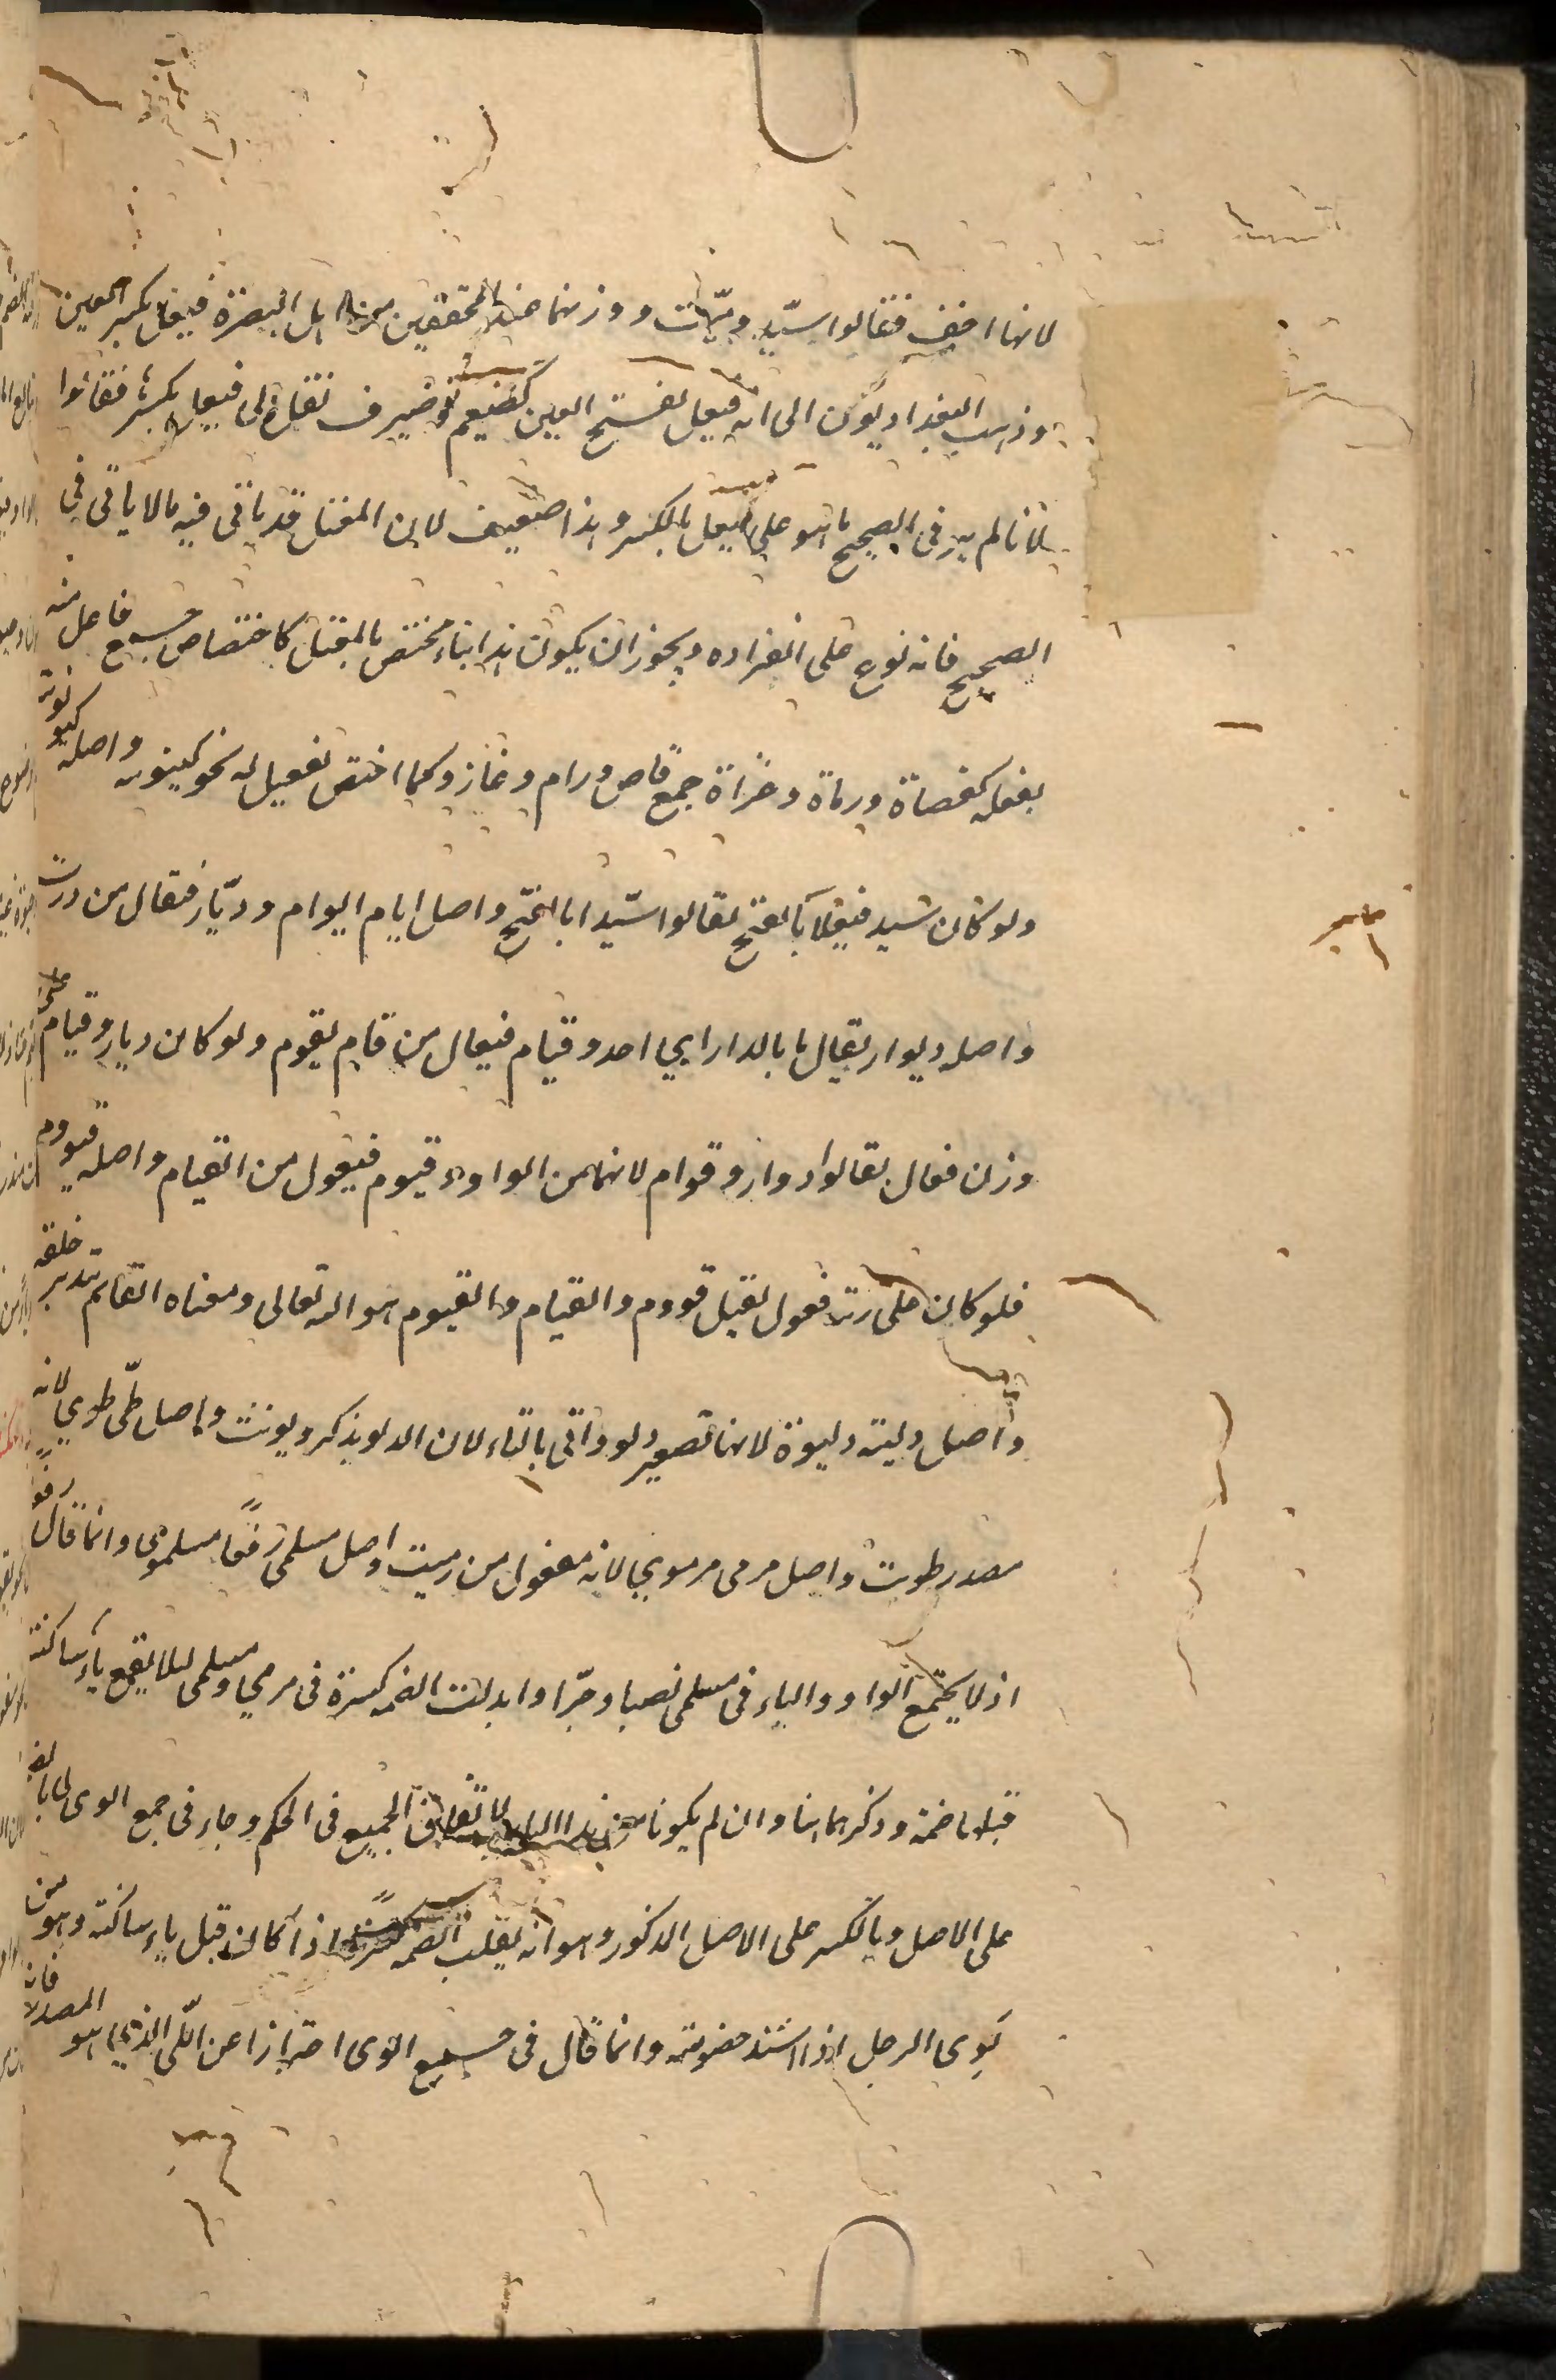 لانها اخف فقالوا سيّد وميّت ووزنهما عند المحققين من اهل البصرة فيعل بكسر العين
وذهب البغداديون الى انه فيعل بفتح العين كضيغم وضيرف نقل الى فيعل بكسر فقالوا
لانا لم نر فى الصحيح ما هو على فيعل بالكسر وهذا ضعيف لان المعتل قد ياتى فيه ما لا ياتى فى
الصحيح فانه نوع على انفراده ويجوز ان يكون هذا بناء مختص بالمعتل كاختصاص جمع فاعل منه
بفعلة كقضاة ورماة وغزاة جمع قاض ورام وغاز وكما اختص بفعيل له نحو كينونه واصله كيونونة
ولو كان سيد فيعلا بالفتح لقالوا سيّدا بالفتح واصل ايام ايوام وديّار فيقال من درت
واصله ديوار يقال ما بالدار اي احد وقيام فيعال من قام يقوم ولو كان ديار وقيام على
وزن فعال لقالوا دوار وقوام لانهما من الواو وقيوم فيعول من القيام واصله قيووم
فلو كان على زنة فعول لقيل قووم والقيام والقيوم هو الله تعالى ومعناه القائم بتدبير خلقه
واصل دلية دليوة لانها تصغير دلو واتى بالتاء لان الدلو يذكر ويونث واصل طىّ طوي لانه
مصدر طويت واصل مرمى مرموي لانه مفعول من رميت واصل مسلمى رفعاً مسلموى وانما قال رفعاً
اذ لا يجتمع الواو والياء فى مسلمى نصبا وجرّا وابدلت الضمه كسرة فى مرمي ومسلمى لئلا يقع ياء ساكنة
قبلها ضمة وذكرهما هنا وان لم يكونا لاتفاق الجميع فى الحكم وجاء فى جمع الوى لى بالضم
على الاصل وبالكسر على الاصل المذكور وهو انه يقلب الضمه كسرة اذا كان قبل ياء ساكنة وهو من
لَوِى الرجل اذا اشتد خصومته وانما قال فى جمع الوى احترازا عن اللّى الذي هو المصدر فانه